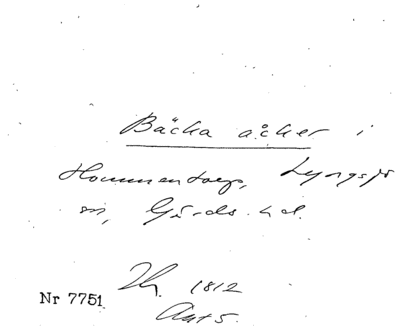 Bäcka åcker i
Hommentorp, Lyngsjö
sn, Gärds hd.
Nr 7751
1812
Akt 5.